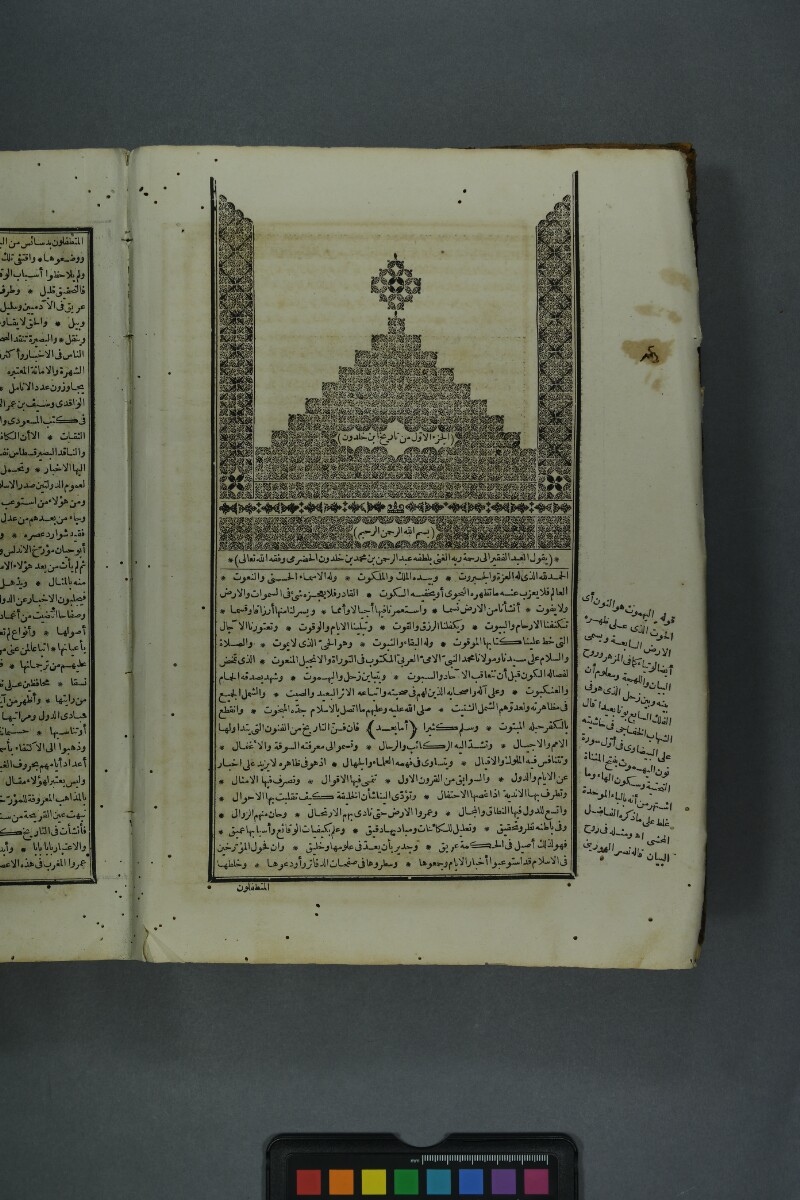 (الجزء الاول من تاريخ ابن خلدون)
(بسم الله الرحمن الرحيم)
* (يقول العبد الفقير الى رحمة ربه الغنى بلطفه عبد الرحمن بن محمد بن خلدون الحضرمى وفقه الله تعالى) *
الحمد لله الذى له العزة والجبروت * وبيده الملك والملكوت * وله الاسماء الحسنى والنعوت *
العالم فلا يعزب عنه ما تظهره النجوى أو يخفيه السكوت * القادر فلا يعجزه شئ فى السموات والارض
ولا يفوت * أنشأنا من الارض نسما * واستعمرنا فيها أجيالا وأمما * ويسر لنا منها أرزاقا وقسما *
تكنفنا الارحام والبيوت * ويكفلنا الرزق والقوت * وتبلينا الايام والوقوت * وتعتورنا الآجال
التى خط علينا كتابها الموقوت * وله البقاء والثبوت * وهو الحى الذى لا يموت * والصلاة
والسلام على سيدنا ومولانا محمد النبى الامى العربى المكتوب فى التوراة والانجيل المنعوت * الذى تمخض
لفصاله الكون قبل أن تتعاقب الآحاد والسبوت * ويتباين زحل والبهموت * وشهد بصدقه الحمام
والعنكبوت * وعلى آله وأصحابه الذين لهم فى صحبته واتباعه الاثر البعيد والصيت * والشمل الجميع
فى مظاهرته ولعدوهم الشمل الشتيت * صلى الله عليه وعليهم ما اتصل بالاسلام جده المبخوت * وانقطع
بالكفر حبله المبتوت * وسلم كثيرا (أما بعد) فان فن التاريخ من الفنون التى يتداولها
الامم والاجيال * وتشد اليه الركائب والرحال * وتسمو الى معرفته السوقة والاغفال *
وتتنافس فيه الملوك والاقيال * ويتساوى فى فهمه العلماء والجهال * اذ هو فى ظاهره لا يزيد على اخبار
عن الايام والدول * والسوابق من القرون الاول * تنمى فيها الاقوال * وتصرف فيها الامثال *
وتطرف بها الاندية اذا غصها الاحتفال * وتؤدى الينا شأن الخليقة كيف تقلبت بها الاحوال *
واتسع للدول فيها النطاق والمجال * وعمروا الارض حتى نادى بهم الارتحال * وحان منهم الزوال *
وفى باطنه نظر وتحقيق * وتعليل للكائنات ومباديها دقيق * وعلم بكيفيات الوقائع وأسبابها عميق *
فهو لذلك أصيل فى الحكمة عريق * وجدير بأن يعد فى علومها وخليق * وان فحول المؤرخين
فى الاسلام قد استوعبوا أخبار الايام وجمعوها * وسطروها فى صفحات الدفاتر وأودعوها * وخلطها
المتطفلون
قوله البهموت هو النون أى
الحوت الذى على ظهره
الارض السابعة ويسمى
أيضا لوتيا كما فى المزهر وروح
البيان واللهجة ومعلوم أن
بينه وبين زحل الذى هو فى
الفلك السابع بونا بعيدا قال
الشهاب الخفاجى فى حاشيته
على البيضاوى فى أول سورة
نون اليهموت بفتح المثناة
التحتية وسكون الهاء وما
اشتهر من أنه بالباء الموحدة
غلط على ما ذكره الفاضل
المحشى اه ومثله فى روح
البيان قاله نصر الهورينى
المتطفلون بدسائس من
ووضعوها * واقتفى تلك
ولم يلاحظوا أسباب
فالتحقيق قليل * وطرف
عريق فى الآدميين وسليل
وبيل * والحق لا يقاوم
وينقل * والبصيرة تنقد
الناس فى الاخبار وأكثروا
الشهرة والامانة المعتبره
يجاوزون عدد الانامل *
الواقدى وسيف بن عمر
فى كتب المسعودى
الثقات * الا أن الكافة
والناقد البصير قسطاس
اليها الاخبار * وتحمل
لعموم الدولتين صدر
ومن هؤلاء من استوعب
وجاء من بعدهم من عدل
فقيد شوارد عصره *
أبو حيان مؤرخ الاندلس
ثم لم يأت من بعد هؤلاء
منه بالمثال * ويذهل
فيجلبون الاخبار عن
وصفاحا انتضيت من
أصولها * وأنواع لم
بأعيانها * اتباعا لمن عنى
عليهم من ترجمانها *
نسقا * محافظين على
من رايتها * وأظهر من
مبادى الدول ومراتبها
أو تناسبها * حسبما
وذهبوا الى الاكتفاء
أعداد أيامهم بحروف
وليس يعتبر لهؤلاء مقال
بالمذاهب المعروفة
نبهت عين القريحة من
فأنشأت فى التاريخ
والاعتبار بابا بابا *
عمروا المغرب فى هذه